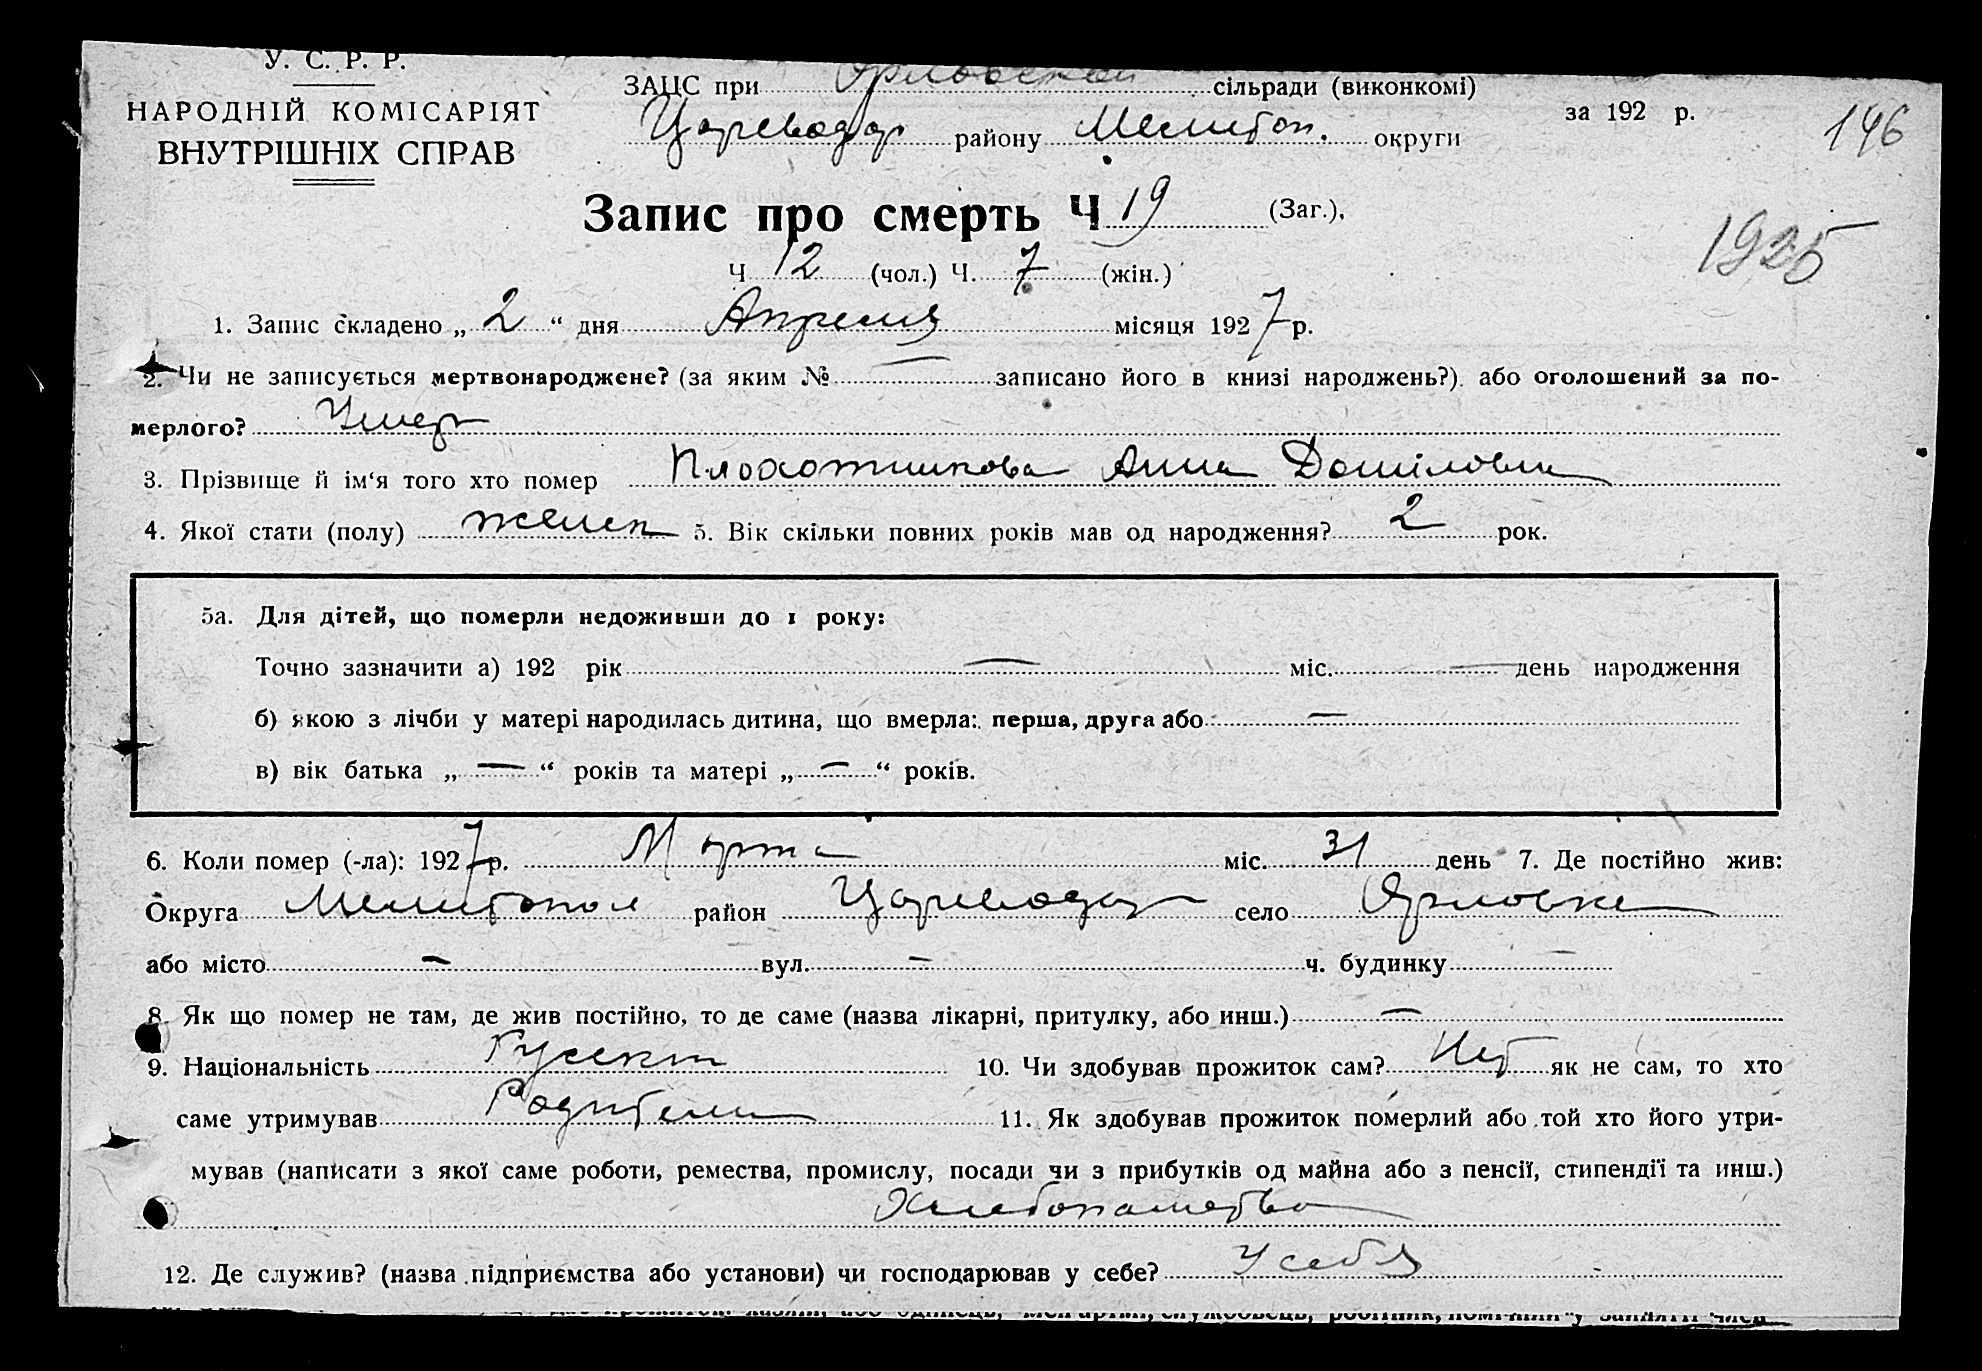 У. С. Р. Р.
НАРОДНІЙ КОМІСАРІЯТ
ВНУТРІШНІХ СПРАВ
ЗАЦС при Орловской сільради (виконкомі)
Цареводар районy Мелитоп. округи
за 192 р.
146
Запис про смерть Ч 19 (Заг.).
1925
Ч 12 (чол.) Ч. 7 (жін.)
1. Запис складено „ 2 “ дня Апреля місяця 1927 р.
2. Чи не записується мертвонароджене? (за яким № — записано його в книзі народжень?). або оголошений за по-
мерлого? Умер
3. Прізвище й ім‘я того хто помер Плохотникова Анна Даніловна
4. Якої стати (полу) женск 5. Вік скільки повних років мав од народження? 2 рок.
5а. Для дітей, що померли недоживши до 1 року:
Точно зазначити а) 192 рік — міс. — день народження
б) якою з лічби у матері народилась дитина, що вмерла: перша, друга або —
в) вік батька „ — “ років та матері „ — “ років.
6. Коли помер (-ла): 1927 р. Марта міс. 31 день 7. Де постійно жив:
Округа Мелитопол район Цареводар село Орловке
або місто — вул. — ч. будинку —
8. Як що помер не там, де жив постійно, то де саме (назва лікарні, притулку, або инш.) —
9. Національність Русск 10. Чи здобував прожиток сам? Нет як не сам, то хто
саме утримував Родители 11. Як здобував прожиток померлий або той хто його утри-
мував (написати з якої саме роботи, ремества, промислу, посади чи з прибутків од майна або з пенсії, стипендії та инш.)
Хлебопашество
12. Де служив? (назва підприємства або установи) чи господарював у себе? У себя